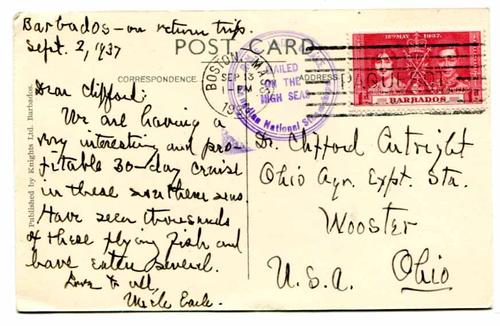 Barbados - on return trip.
Sept. 2, 1937
POST CARD
CORRESPONDENCE.
ADDRESS
BOSTON, MASS.
SEP 13
PM
MAILED
ON THE
HIGH SEAS
National
PAQUEBOT
12TH MAY 1937.
BARBADOS
Dear Clifford:
We are having a
very interesting and pro-
fitable 30-day cruise
in these southern seas
Have seen thousands
of these flying fish and
have eaten several.
Love to all,
Uncle Earle.
Dr. Clifford Cutright
Ohio Agr. Expt. Sta.
Wooster
Ohio
U.S.A.
Published by Knights Ltd. Barbados.